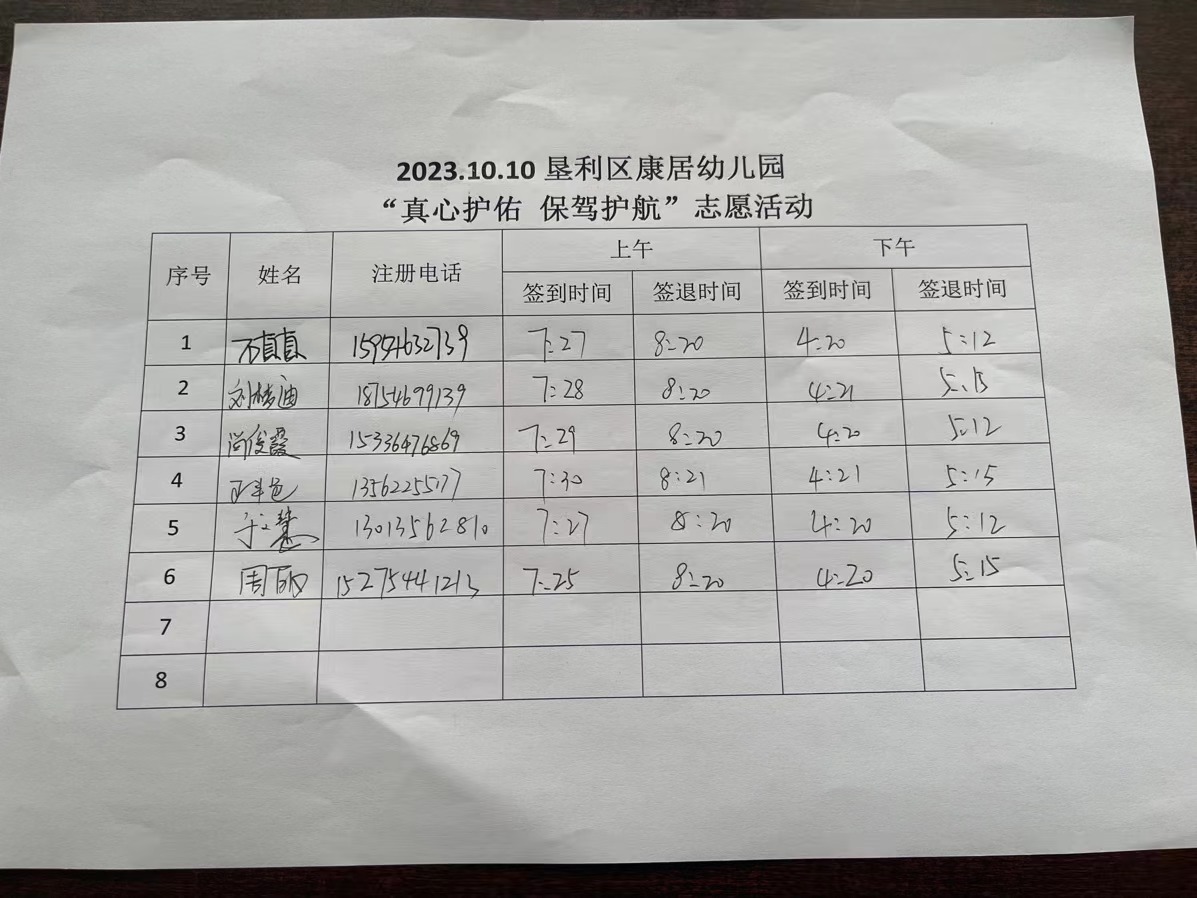 2023.10.10 垦利区康居幼儿园
“真心护佑 保驾护航”志愿活动
序号 姓名 注册电话 上午 下午
签到时间 签退时间 签到时间 签退时间
1 真真 15954632739 7:27 8:20 4:20 5:12
2 刘梦迪 18754699139 7:28 8:20 4:21 5:15
3 尚俊霞 15336476869 7:29 8:20 4:20 5:12
4 13562255177 7:30 8:21 4:21 5:15
5 于文慧 13013562810 7:27 8:20 4:20 5:12
6 周丽 15275441213 7:25 8:20 4:20 5:15
7
8